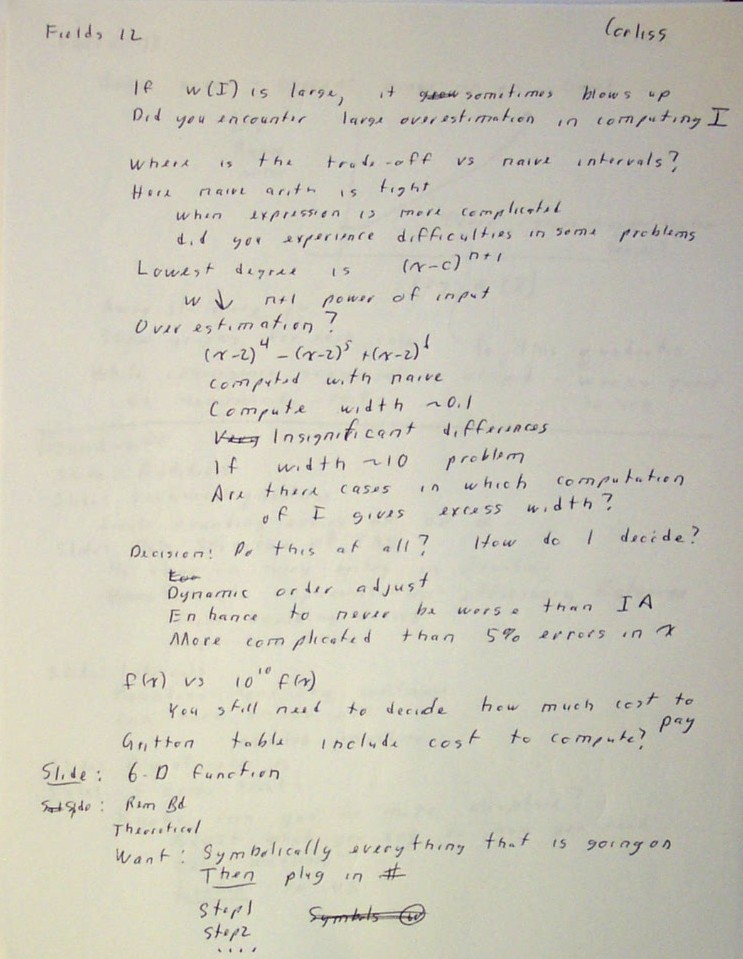 Fields 12 Corliss
If w(I) is large, it sometimes blows up
Did you encounter large overestimation in computing I
Where is the trade-off vs naive intervals?
Here naive arith is tight
When expression is more complicated
did you experience difficulties in some problems
Lowest degree is (x-c)^{n+1}
w ↓ n+1 power of input
Over estimation?
(x-2)^4 - (x-2)^5 + (x-2)^6
computed with naive
Compute width ~0.1
Very Insignificant differences
If width ~10 problem
Are there cases in which computation
of I gives excess width?
Decision: Do this at all? How do I decide?
Dynamic order adjust
Enhance to never be worse than IA
More complicated than 5% errors in x
f(x) vs 10^{10} f(x)
You still need to decide how much cost to pay
table include cost to compute?
Slide: 6-D function
Rem Bd
Theoretical
Want: Symbolically everything that is going on
Then plug in #
Step1 Symbols
Step2
....